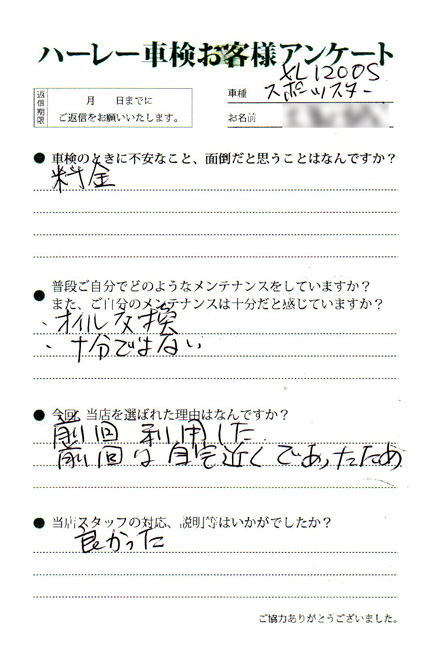 ハーレー車検お客様アンケート
返信期限
月　　日までに
ご返信をお願いいたします。
車種
XL1200S
スポーツスター
お名前
● 車検のときに不安なこと、面倒だと思うことはなんですか？
料金
● 普段ご自分でどのようなメンテナンスをしていますか？
また、ご自分のメンテナンスは十分だと感じていますか？
・オイル交換
・十分ではない
● 今回、当店を選ばれた理由はなんですか？
前回利用した
前回は自宅近くであったため
● 当店スタッフの対応、説明等はいかがでしたか？
良かった
ご協力ありがとうございました。